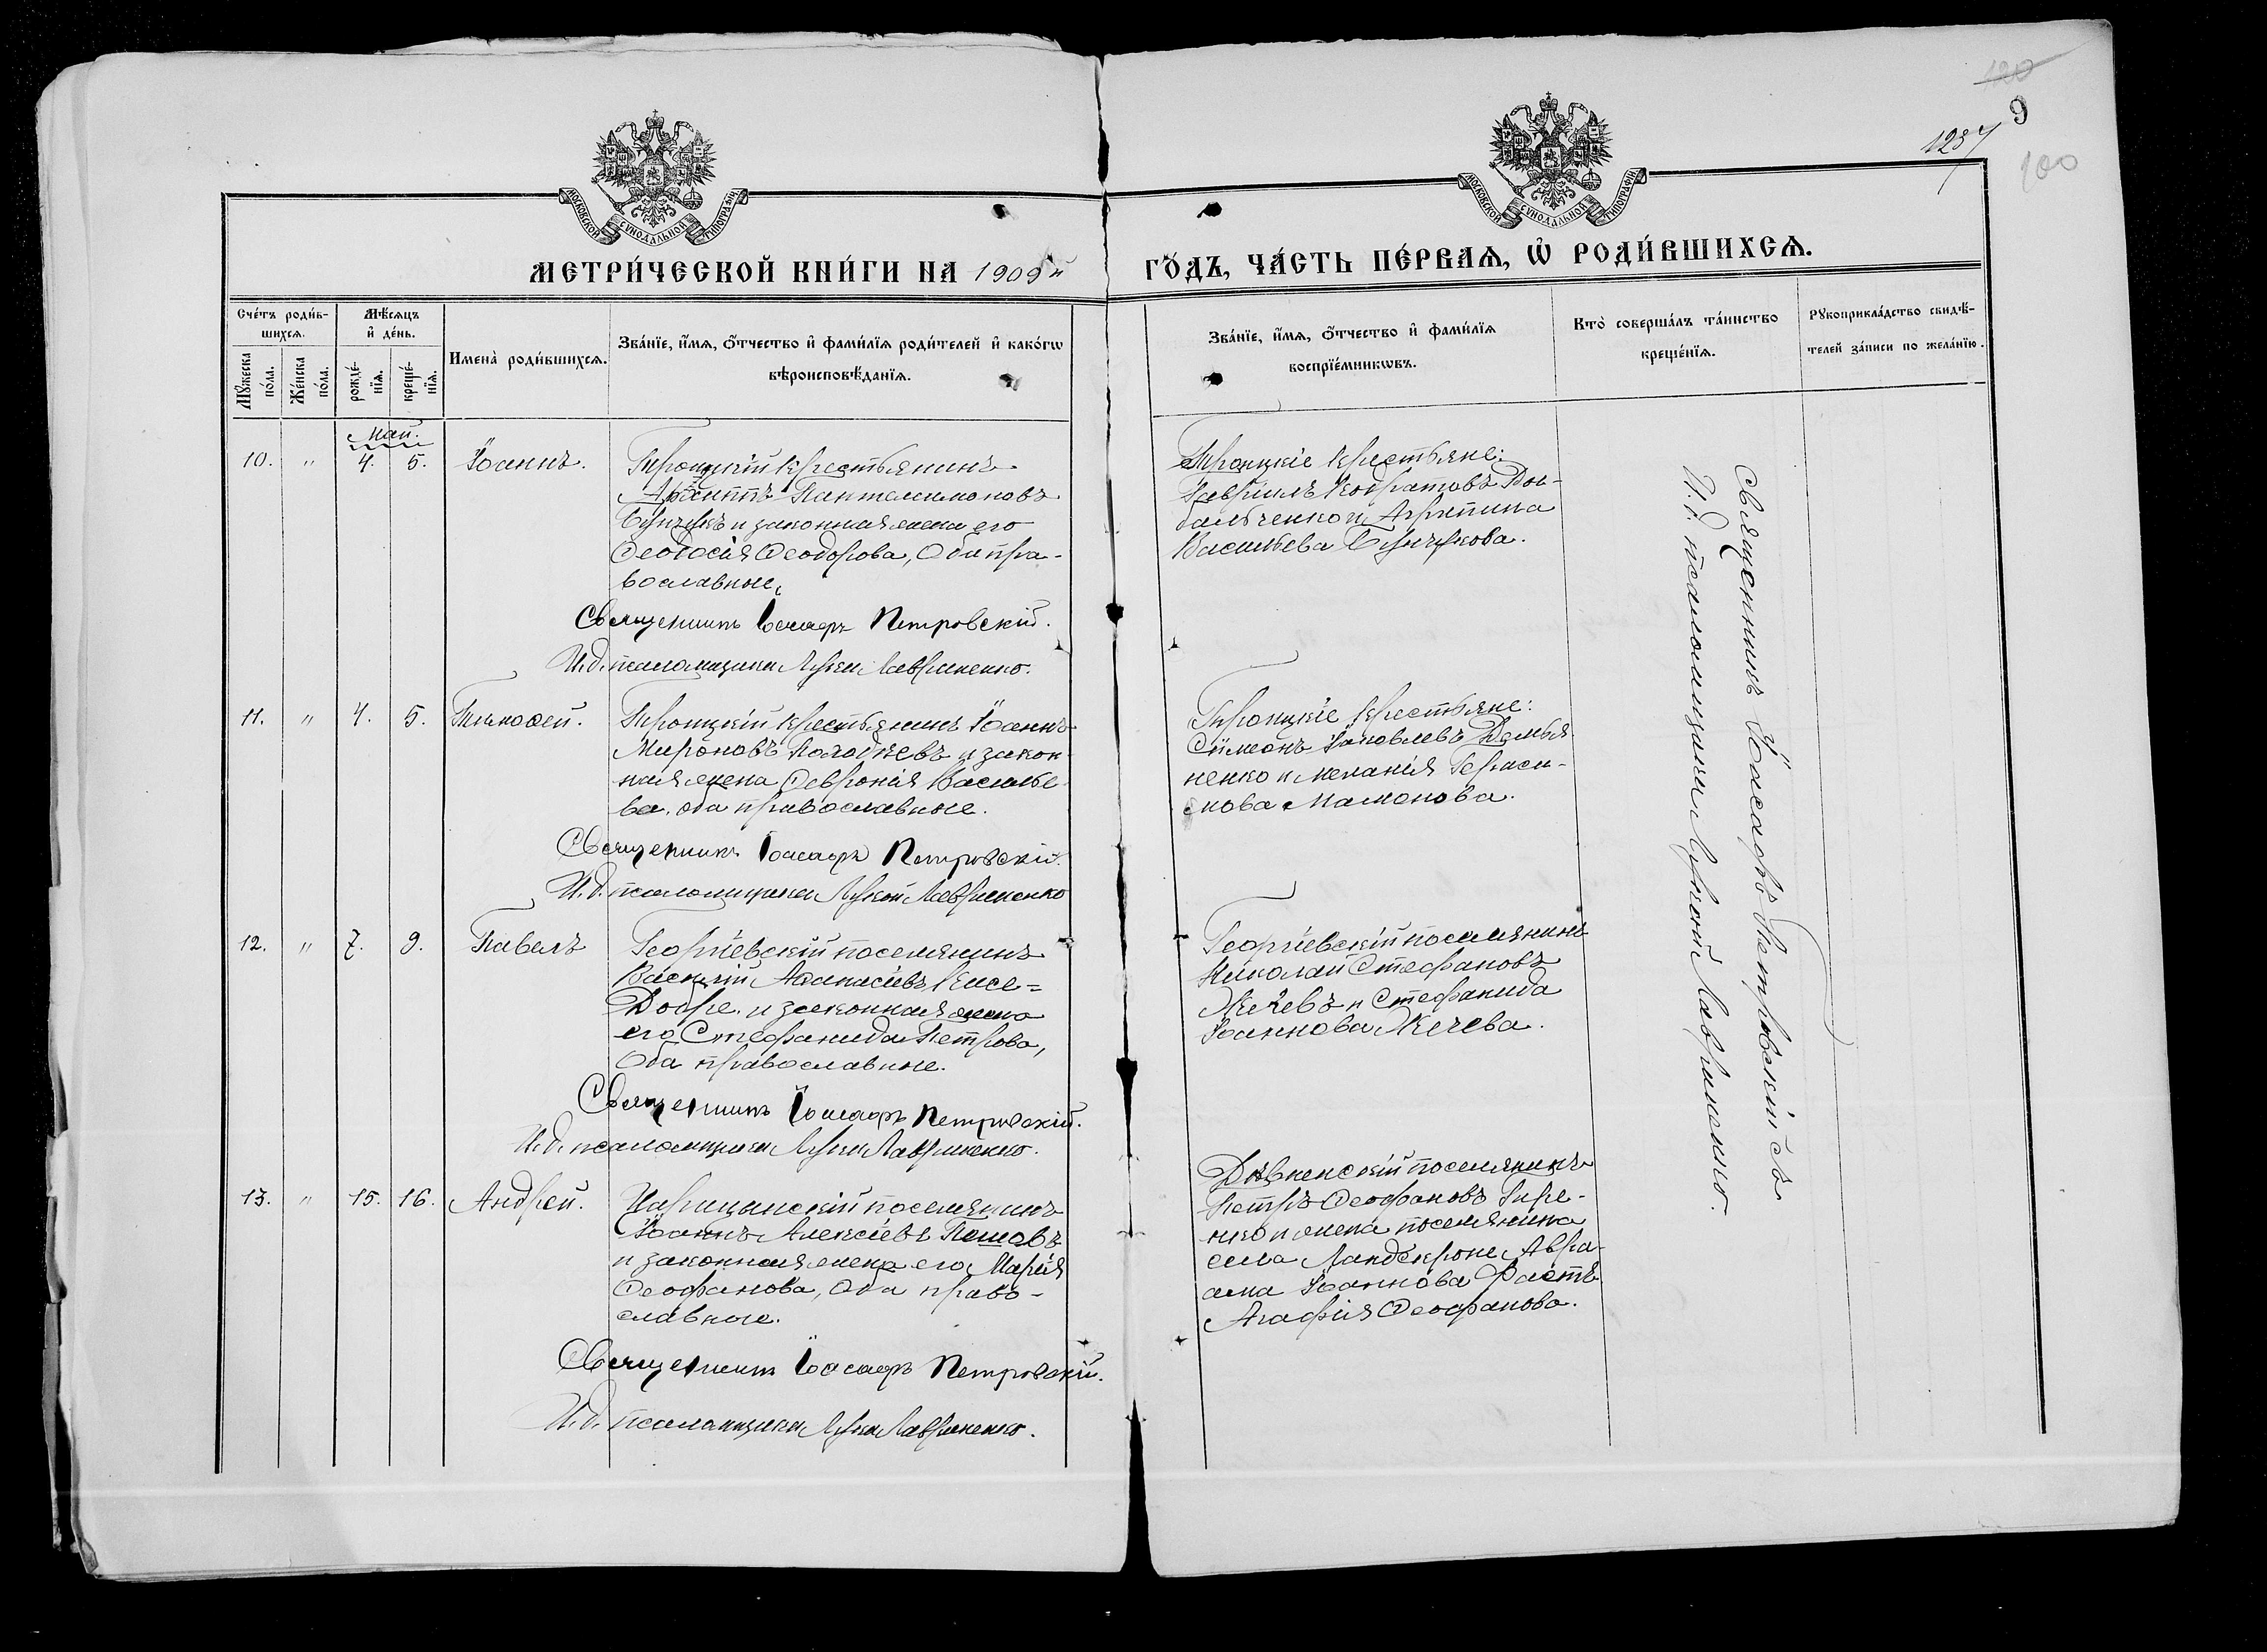 120
9
1237
100
МОСКОВСКОЙ СѴНОДАЛЬНОЙ ТИПОГРАФІИ
МОСКОВСКОЙ СѴНОДАЛЬНОЙ ТИПОГРАФІИ
МЕТРИ́ЧЕСКОЙ КНИ́ГИ НА 1909й
ГО́ДЪ, ЧА́СТЬ ПЕ́РВАѦ, Ѡ҆ РОДИ́ВШИХСѦ.
Сче́тъ роди́в-
шихсѧ.
Мꙋжеска по́ла.
Же́нска по́ла.
Мѣ́сѧцъ
и҆ де́нь.
рожде́-
нїѧ.
креще́-
нїѧ.
Имена̀ роди́вшихсѧ.
Зва́нїе, и҆́мѧ, ѻ҆́тчество и҆ фами́лїѧ роди́телей и҆ како́гѡ
вѣроисповѣ́данїѧ.
Зва́нїе, и҆́мѧ, ѻ҆́тчество и҆ фами́лїѧ
воспрїе́мникѡвъ.
Кто̀ соверша́лъ та́инство
креще́нїѧ.
Рꙋкоприкла́дство свидѣ́-
телей за́писи по жела́нїю.
май.
10. " 4. 5. Іоаннъ.
Троицкій крестьянинъ
Пантелимоновъ
и законная жена его
Ѳеодосія Ѳеодорова, Оба пра-
вославные.
Священникъ Іоасафъ Петровскій.
И. д. псаломщика Лука Лавриненко.
Троицкіе крестьяне:
Гавріилъ Кодратовъ Дов-
бальченко и Агрипина
Васильева
11. " 4. 5. Тимоѳей.
Троицкій крестьянинъ Іоаннъ
Мироновъ Колодчевъ и закон-
ная жена Ѳевронія Василье-
ва, оба православные.
Священникъ Іоасафъ Петровскій.
И. д. псаломщика Лукой Лавриненко
Троицкіе крестьяне:
Сѵмеонъ Іаковлевъ Демья-
ненко и Меланія Гераси-
мова Мамонова.
12. " 7. 9. Павелъ
Георгіевскій поселянинъ
Василій Аѳанасіевъ Кисе-
Добре. и законная жена
его Стефанида Петрова,
Оба православные.
Священникъ Іоасафъ Петровскій.
И. д. псаломщика Лука Лавриненко.
Георгіевскій поселянинъ
Николай Стефановъ
Жечевъ и Стефанида
Іоаннова Жечева.
13. " 15. 16. Андрей.
Царицынскій поселянинъ
Іоаннъ Алексіевъ
и законная жена его Марія
Ѳеофанова, Оба право-
славные.
Священникъ Іоасафъ Петровскій.
И. д. псаломщика Лука Лавриненко.
поселянинъ
Петръ Ѳеофановъ
и жена поселянина
села Ландскроне, Авра-
ама Іоаннова Фастъ
Агафія Ѳеофанова.
Священникъ Іоасафъ Петровскій съ
И. д. псаломщика Лукой Лавриненко.